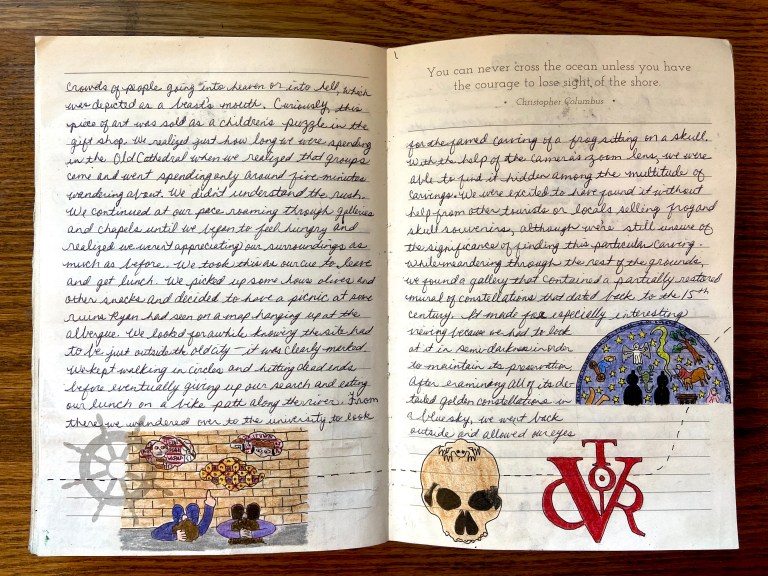 crowds of people going into heaven or into hell, which
was depicted as a beast's mouth. Curiously, this
piece of art was sold as a children's puzzle in the
gift shop. We realized just how long we were spending
in the Old Cathedral when we realized that groups
came and went spending only around five minutes
wandering about. We didn't understand the rush.
We continued at our pace roaming through galleries
and chapels until we began to feel hungry and
realized we weren't appreciating our surroundings as
much as before. We took this as our cue to leave
and get lunch. We picked up some hous olives and
other snacks and decided to have a picnic at some
ruins Ryan had seen on a map hanging up at the
albergue. We looked for awhile knowing the site had
to be just outside the old city - it was clearly marked.
We kept walking in circles and hitting dead ends
before eventually giving up our search and eating
our lunch on a bike path along the river. From
there we wandered over to the university to look
You can never cross the ocean unless you have
the courage to lose sight of the shore.
• Christopher Columbus •
for the famed carving of a frog sitting on a skull.
With the help of the camera's zoom lens, we were
able to find it hidden among the multitude of
carvings. We were excited to have found it without
help from other tourists or locals selling frog and
skull souvenirs, although were still unsure of
the significance of finding this particular carving.
While meandering through the rest of the grounds,
we found a gallery that contained a partially restored
mural of constellations that dated back to the 15th
century. It made for especially interesting
viewing because we had to look
at it in semi-darkness in order
to maintain its preservation.
After examining all of its de-
tailed golden constellations in
a blue sky, we went back
outside and allowed our eyes
VTOR